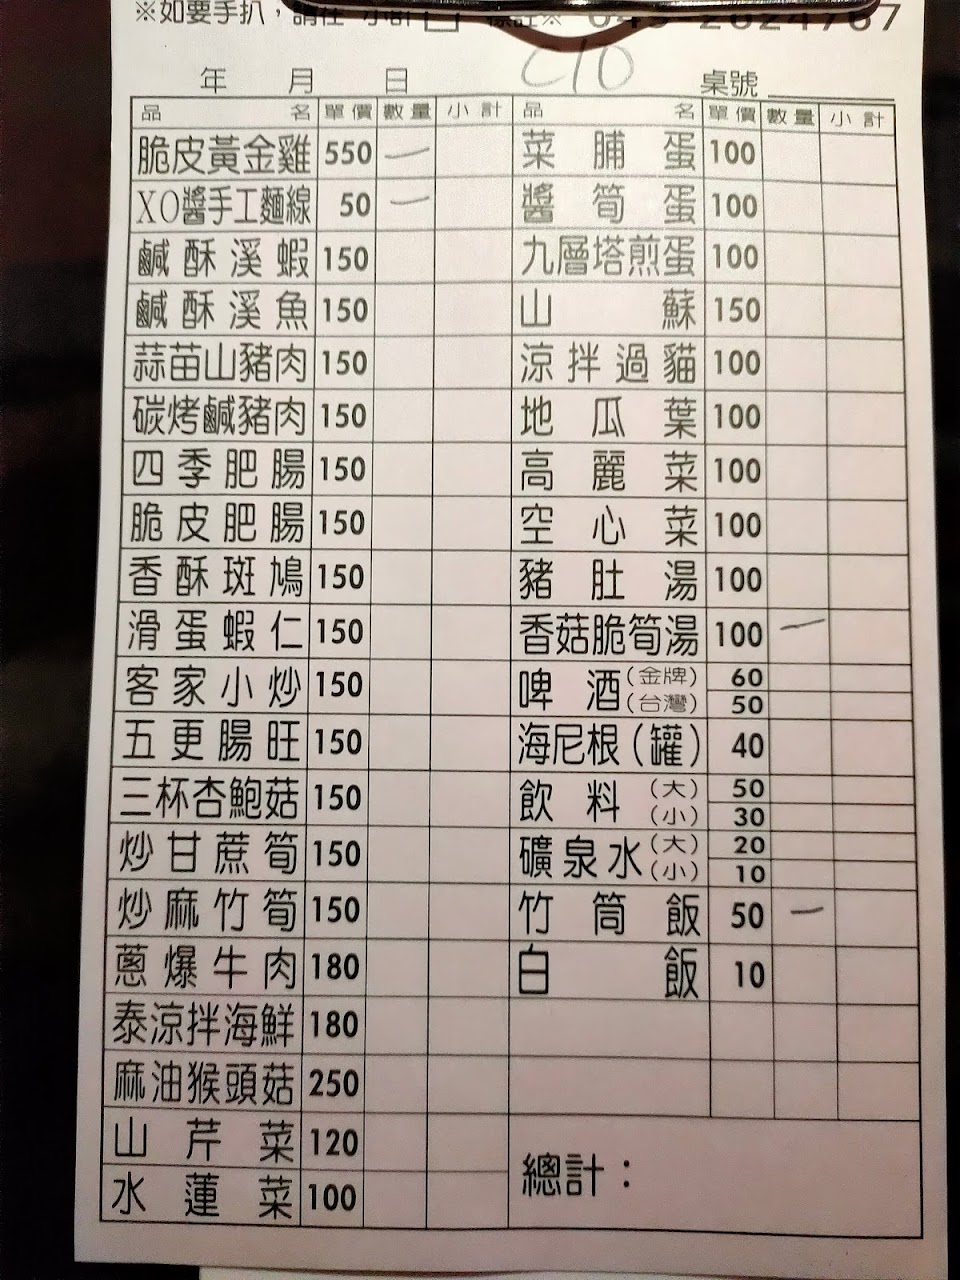 ※如要手扒,請在 小計 標註※ 049-2624767
C10
年 月 日 桌號
品名 單價 數量 小計 品名 單價 數量 小計
脆皮黃金雞 550 一 菜脯蛋 100
XO醬手工麵線 50 一 醬筍蛋 100
鹹酥溪蝦 150 九層塔煎蛋 100
鹹酥溪魚 150 山蘇 150
蒜苗山豬肉 150 涼拌過貓 100
碳烤鹹豬肉 150 地瓜葉 100
四季肥腸 150 高麗菜 100
脆皮肥腸 150 空心菜 100
香酥斑鳩 150 豬肚湯 100
滑蛋蝦仁 150 香菇脆筍湯 100 一
客家小炒 150 啤酒 (金牌) 60
(台灣) 50
五更腸旺 150 海尼根(罐) 40
三杯杏鮑菇 150 飲料 (大) 50
(小) 30
炒甘蔗筍 150 礦泉水 (大) 20
(小) 10
炒麻竹筍 150 竹筒飯 50 一
蔥爆牛肉 180 白飯 10
泰涼拌海鮮 180
麻油猴頭菇 250
山芹菜 120
水蓮菜 100
總計: